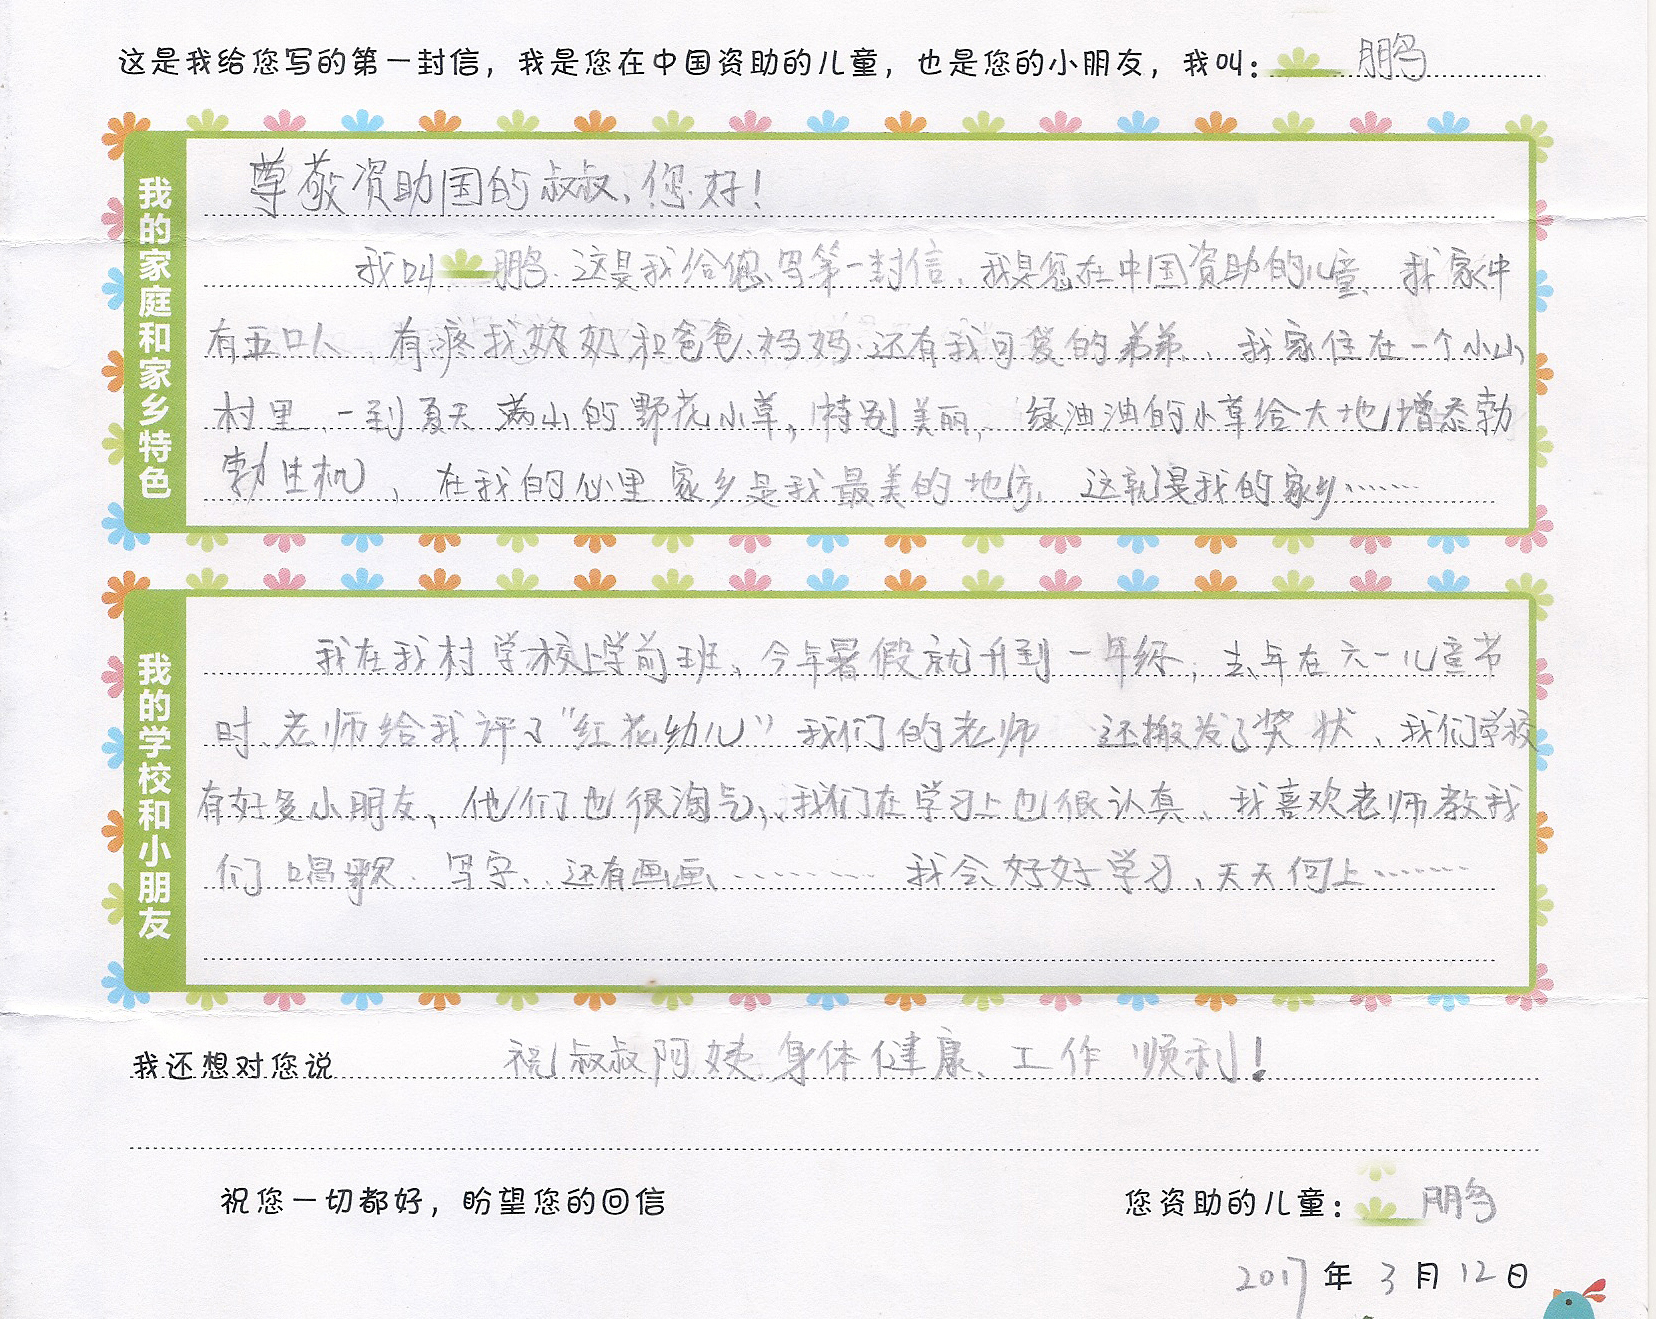 这是我给您写的第一封信，我是您在中国资助的儿童，也是您的小朋友，我叫：鹏
我的家庭和家乡特色
尊敬资助国的叔叔、您好！
我叫鹏、这是我给您写第一封信、我是您在中国资助的儿童、我家中
有五口人、有疼我奶奶和爸爸、妈妈、还有我可爱的弟弟、我家住在一个小山
村里、一到夏天满山的野花小草，特别美丽，绿油油的小草给大地增添勃
勃生机、在我的心里家乡是我最美的地方、这就是我的家乡……
我的学校和小朋友
我在我村学校上学前班、今年暑假就升到一年级；去年在六一儿童节
时、老师给我评了“红花幼儿”我们的老师 还搬发了奖状、我们学校
有好多小朋友、他们也很淘气，我们在学习上也很认真、我喜欢老师教我
们唱歌、写字、还有画画、……… 我会好好学习、天天何上……
我还想对您说 祝叔叔阿姨身体健康、工作顺利！
祝您一切都好，盼望您的回信
您资助的儿童：鹏
2017年3月12日